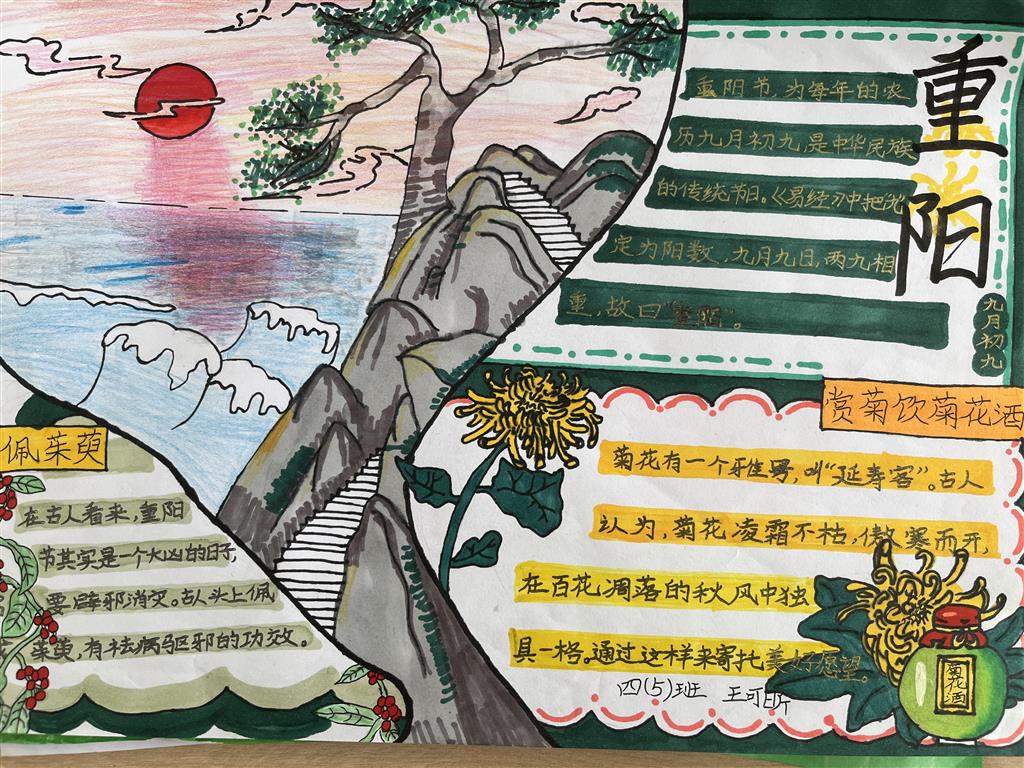 重阳
九月初九
重阳节,为每年的农
历九月初九,是中华民族
的传统节日。《易经》中把"九"
定为阳数,九月九日,两九相
重,故曰"重阳"。
赏菊饮菊花酒
菊花有一个雅号,叫"延寿客"。古人
认为,菊花凌霜不枯,傲寒而开,
在百花凋落的秋风中独
具一格。通过这样来寄托美好愿望。
四(5)班 王可昕
菊花酒
佩茱萸
在古人看来,重阳
节其实是一个大凶的日子,
要辟邪消灾。古人头上佩
茱萸,有祛病驱邪的功效。